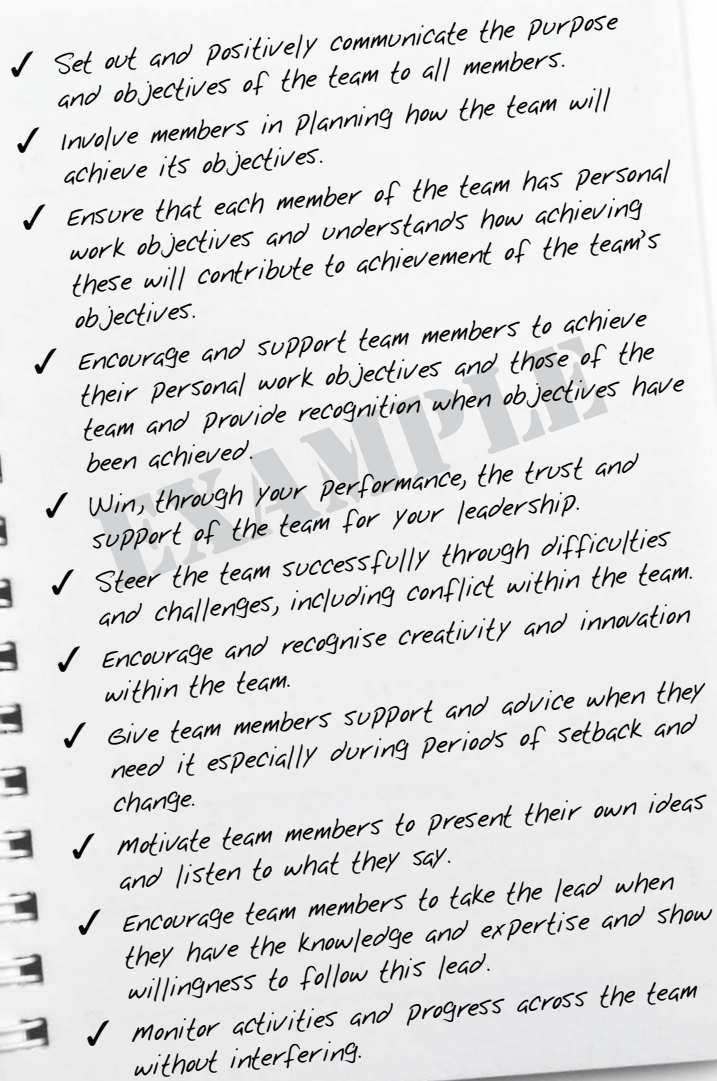 ✓ Set out and positively communicate the purpose
and objectives of the team to all members.
✓ Involve members in planning how the team will
achieve its objectives.
✓ Ensure that each member of the team has personal
work objectives and understands how achieving
these will contribute to achievement of the team's
objectives.
✓ Encourage and support team members to achieve
their personal work objectives and those of the
team and provide recognition when objectives have
been achieved.
✓ Win, through your performance, the trust and
support of the team for your leadership.
✓ Steer the team successfully through difficulties
and challenges, including conflict within the team.
✓ Encourage and recognise creativity and innovation
within the team.
✓ Give team members support and advice when they
need it especially during periods of setback and
change.
✓ Motivate team members to present their own ideas
and listen to what they say.
✓ Encourage team members to take the lead when
they have the knowledge and expertise and show
willingness to follow this lead.
✓ Monitor activities and progress across the team
without interfering.
EXAMPLE